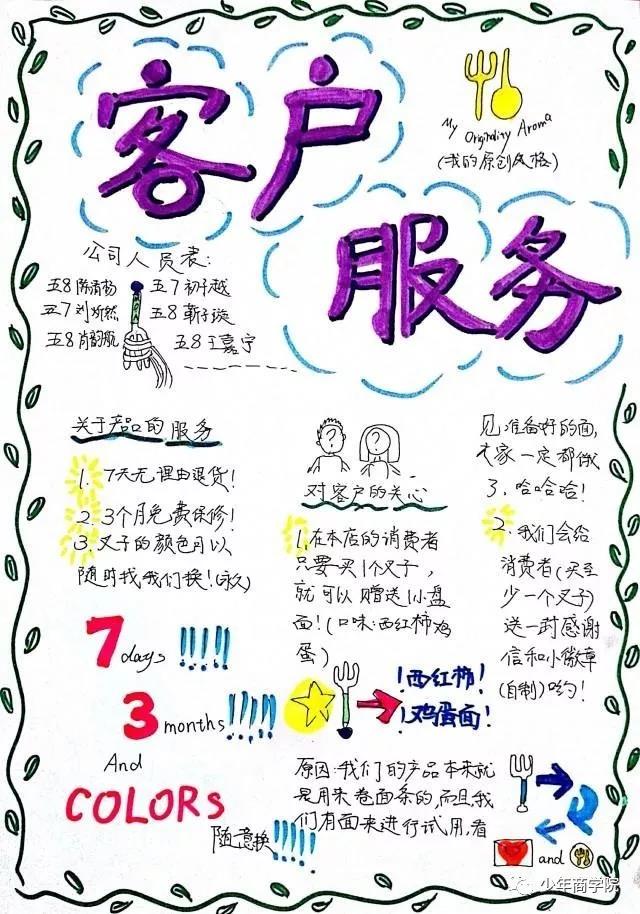 客户
服务
My Originality Aroma
(我的原创风格)
公司人员表:
五8 五7
五7 刘 五8
五8 五8 王嘉宁
关于产品的服务
1. 7天无理由退货!
2. 3个月免费保修!
3. 叉子的颜色可以
随时找我们换!(永久)
7 days !!!!
3 months !!!!!
And
COLORS
随意换!!!!!
? ?
对客户的关心
1. 在本店的消费者
只要买1个叉子,
就可以赠送1小盘
面!(口味:西红柿鸡
蛋)
!西红柿!
!鸡蛋面!
原因:我们的产品本来就
是用来卷面条的,而且我
们有面来进行试用,看
见准备好的面,
大家一定都饿
了,哈哈哈!
2. 我们会给
消费者(买至
少一个叉子)
送一封感谢
信和小徽章
(自制)哟!
and
少年商学院